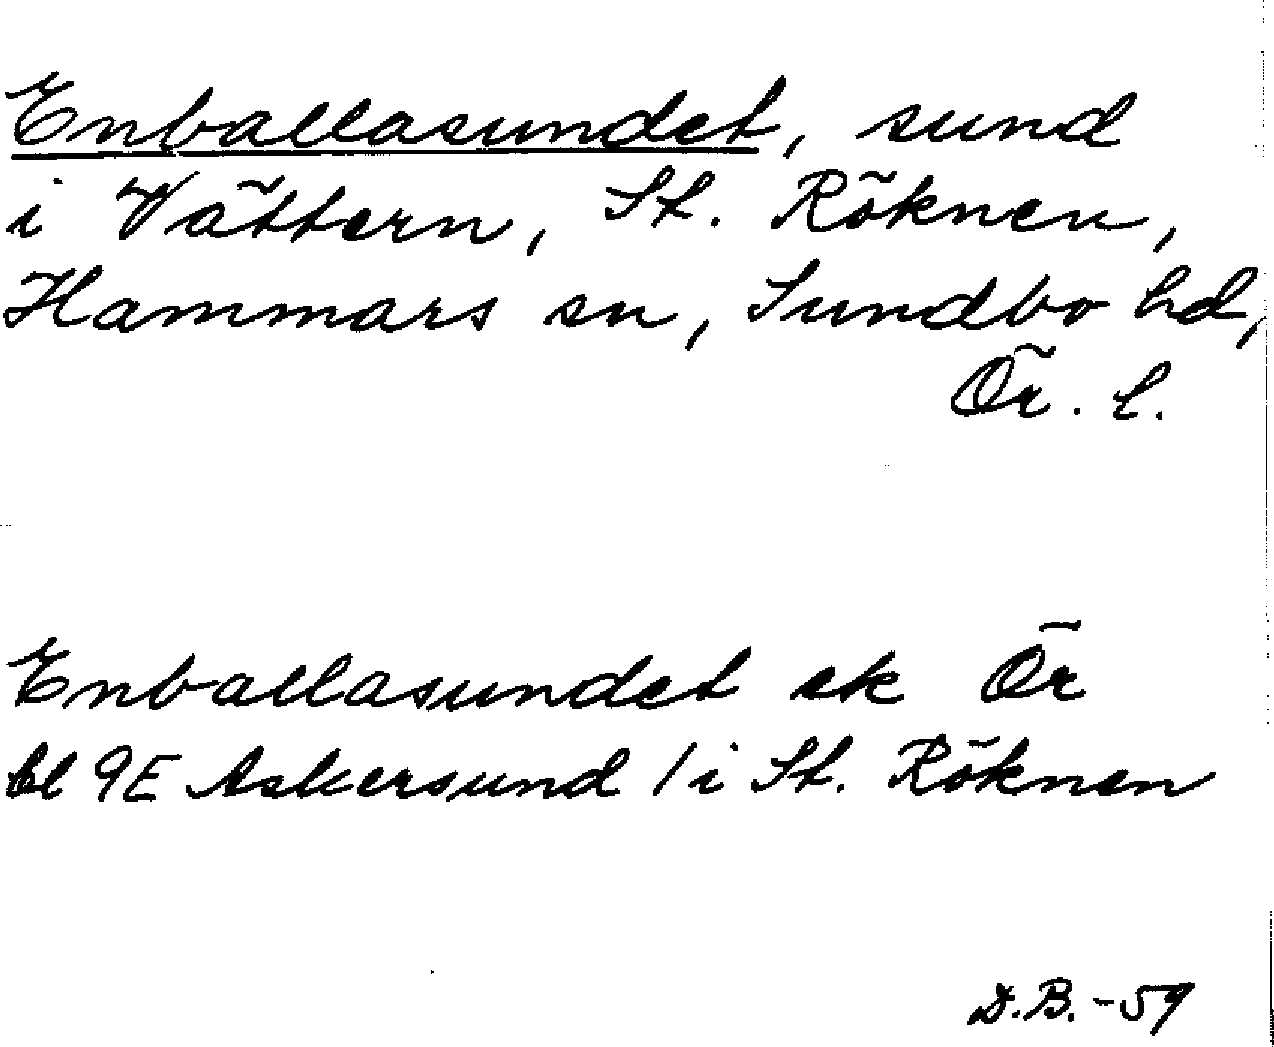 Enballasundet, sund
i Vättern, St. Röknen,
Hammars sn, Sundbo hd,
Ör. l.
Enballasundet ek Ör
bl 9E Askersund / i St. Röknen
D.B. -59